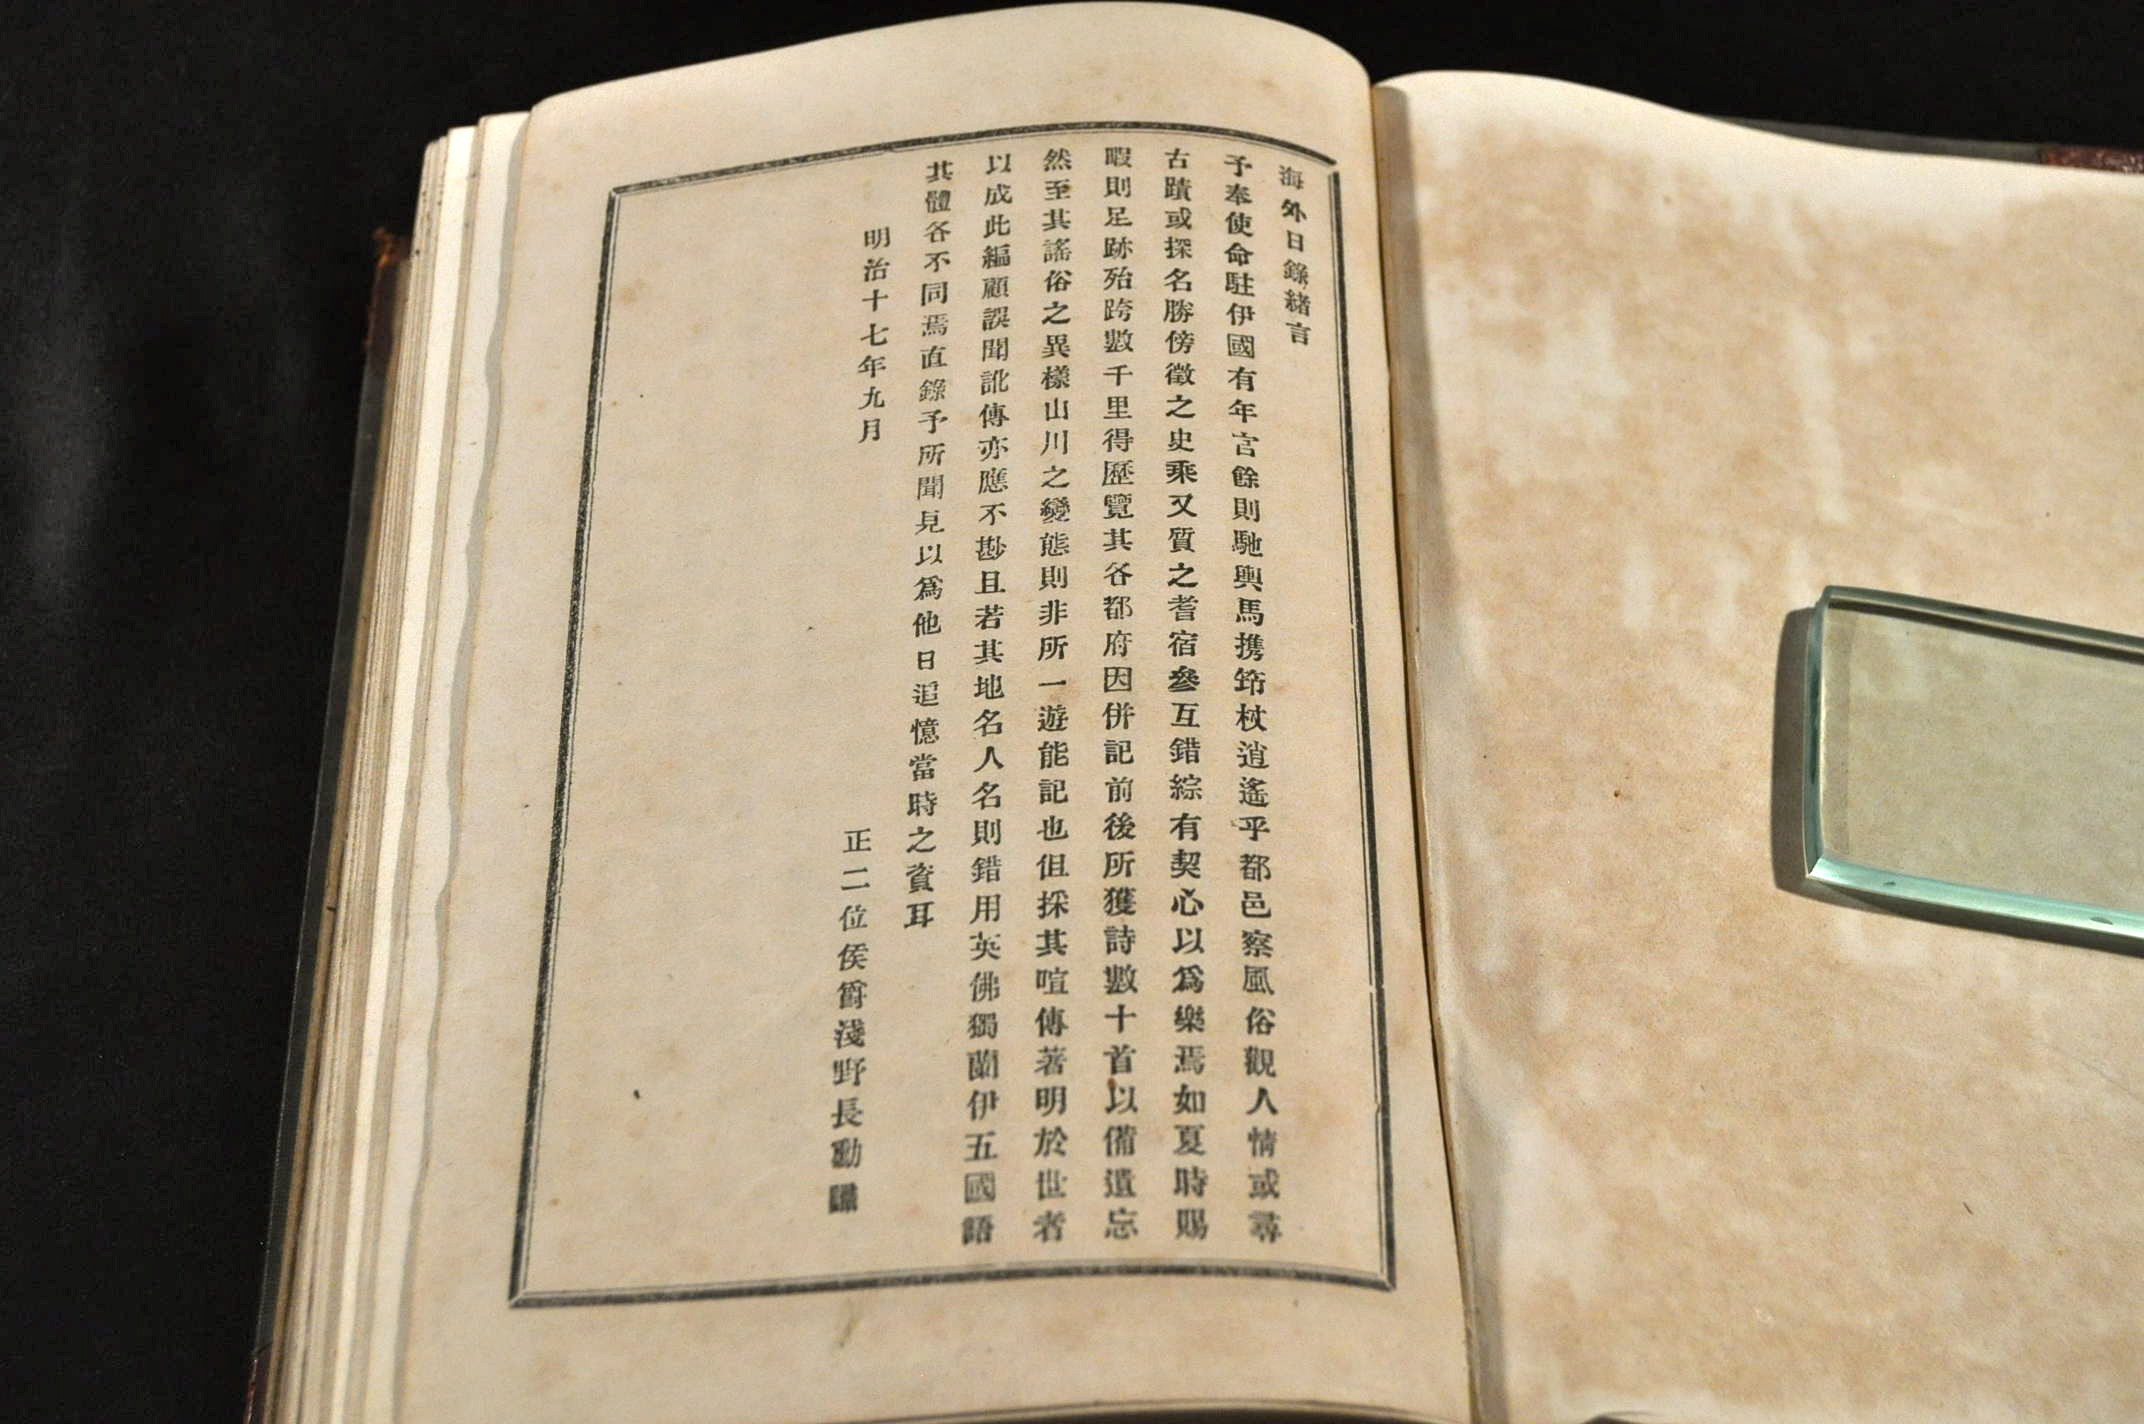 海外日錄緒言
予奉使命駐伊國有年官餘則馳輿馬携笻杖逍遙乎都邑察風俗觀人情或尋
古蹟或探名勝傍徵之史乘又質之耆宿參互錯綜有契心以爲樂焉如夏時賜
暇則足跡殆跨數千里得歷覽其各都府因併記前後所獲詩數十首以備遺忘
然至其謠俗之異樣山川之變態則非所一遊能記也但採其喧傳著明於世者
以成此編顧誤聞訛傳亦應不尠且若其地名人名則錯用英佛獨蘭伊五國語
其體各不同焉直錄予所聞見以爲他日追憶當時之資耳
明治十七年九月
正二位侯爵淺野長勳識